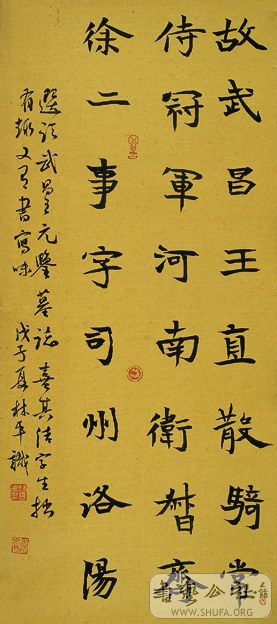 故武昌王直散騎常
侍冠軍河南衛督齊
徐二事字司州洛陽
選臨武昌王元鑒墓誌喜其結字生拙
有趣又有書寫味 戊子夏林平識
WWW.SHUFA.ORG